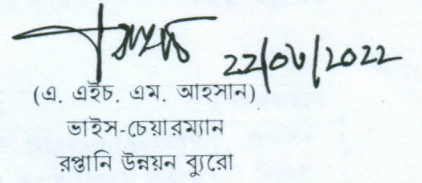 22/06/2022
(এ. এইচ. এম. আহসান)
ভাইস-চেয়ারম্যান
রপ্তানি উন্নয়ন ব্যুরো